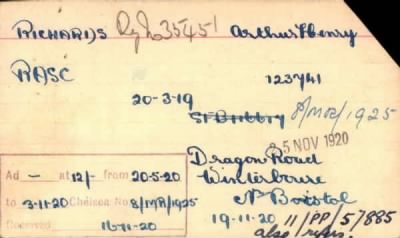 RICHARDS Rg/No 35451 Arthur Henry
RASC 123741
20-3-19 8/MR/1925
5 NOV 1920
Dragon Road
Winterbourne
N Bristol
19-11-20 11/PP/57885
Ad — at 12/- from 20-5-20
to 3-11-20 Chelsea No 8/MR/1925
16-11-20
also